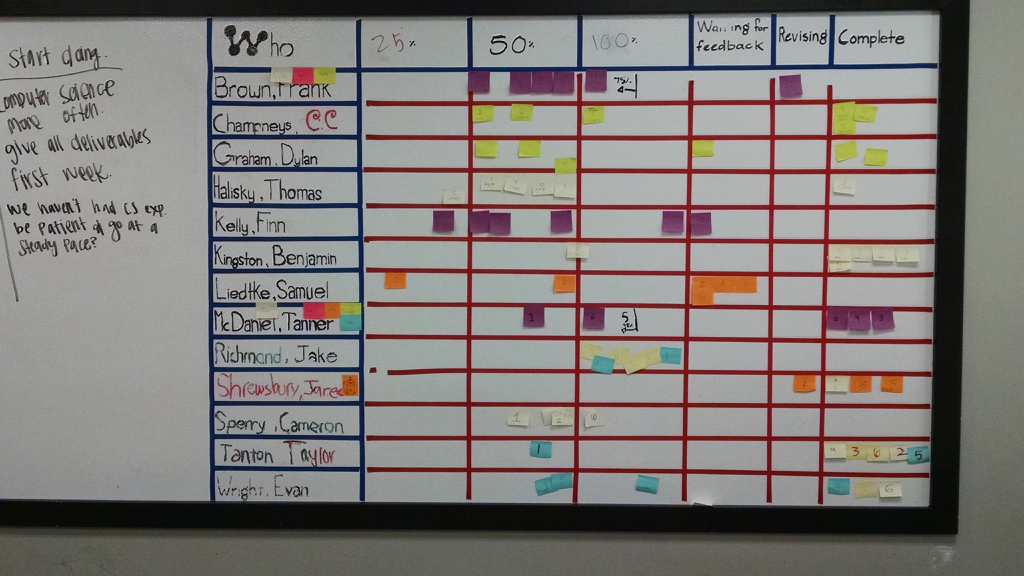 Start doing.
computer science
more often.
give all deliverables
first week.
we haven't had CS exp.
be patient & go at a
steady pace?
Who 25% 50% 100% Waiting for feedback Revising Complete
Brown, Frank 75%
Champneys, C.C
Graham, Dylan
Halisky, Thomas
Kelly, Finn
Kingston, Benjamin
Liedtke, Samuel
McDaniel, Tanner 1 6 5
Richmond, Jake
Shrewsbury, Jared
Sperry, Cameron 1 2 6
Tanton Taylor 1 4 3 6 2 5
Wright, Evan 6